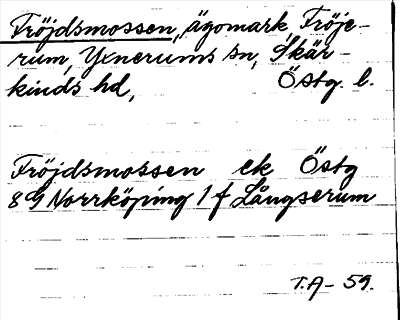 Fröjdsmossen, ägomark Fröje-
rum, Yxnerums sn, Skär-
kinds hd, Östg. l.
Fröjdsmossen ek Östg
8G Norrköping 1 f Långserum
T.A- 59.